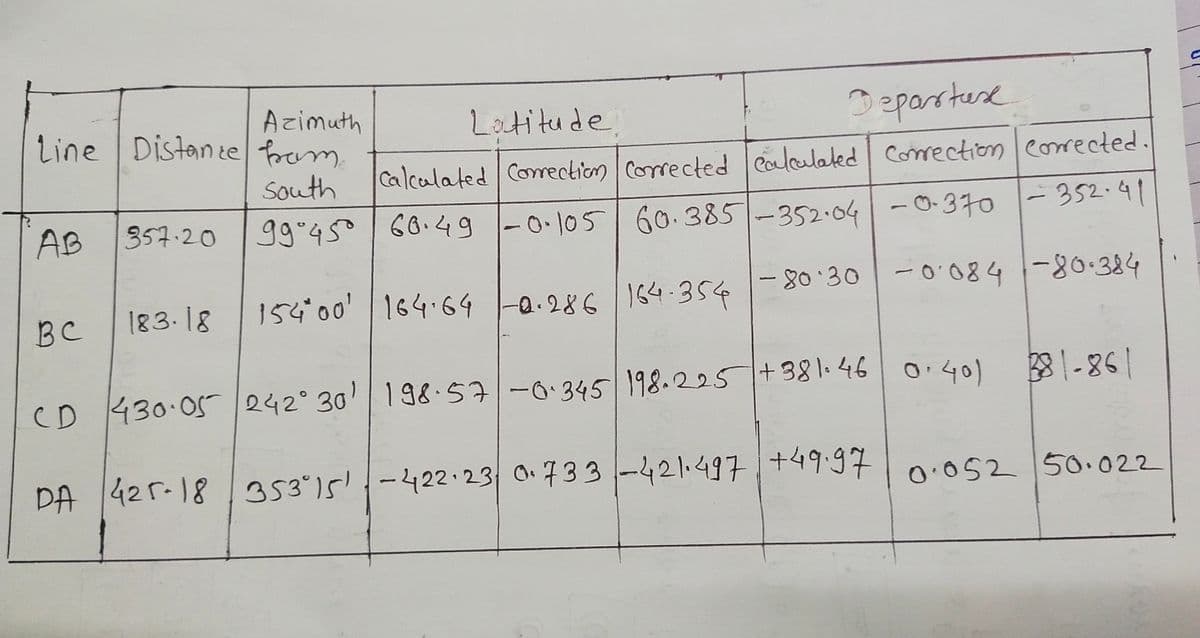 Line Distance Azimuth from South Latitude Departure
Calculated Correction Corrected Calculated Correction Corrected.
AB 357.20 99°45° 60.49 -0.105 60.385 -352.04 -0.370 -352.41
BC 183.18 154°00' 164.64 -0.286 164.354 -80.30 -0.084 -80.384
CD 430.05 242°30' 198.57 -0.345 198.225 +381.46 0.401 381.861
DA 425.18 353°15' -422.23 0.733 -421.497 +49.97 0.052 50.022